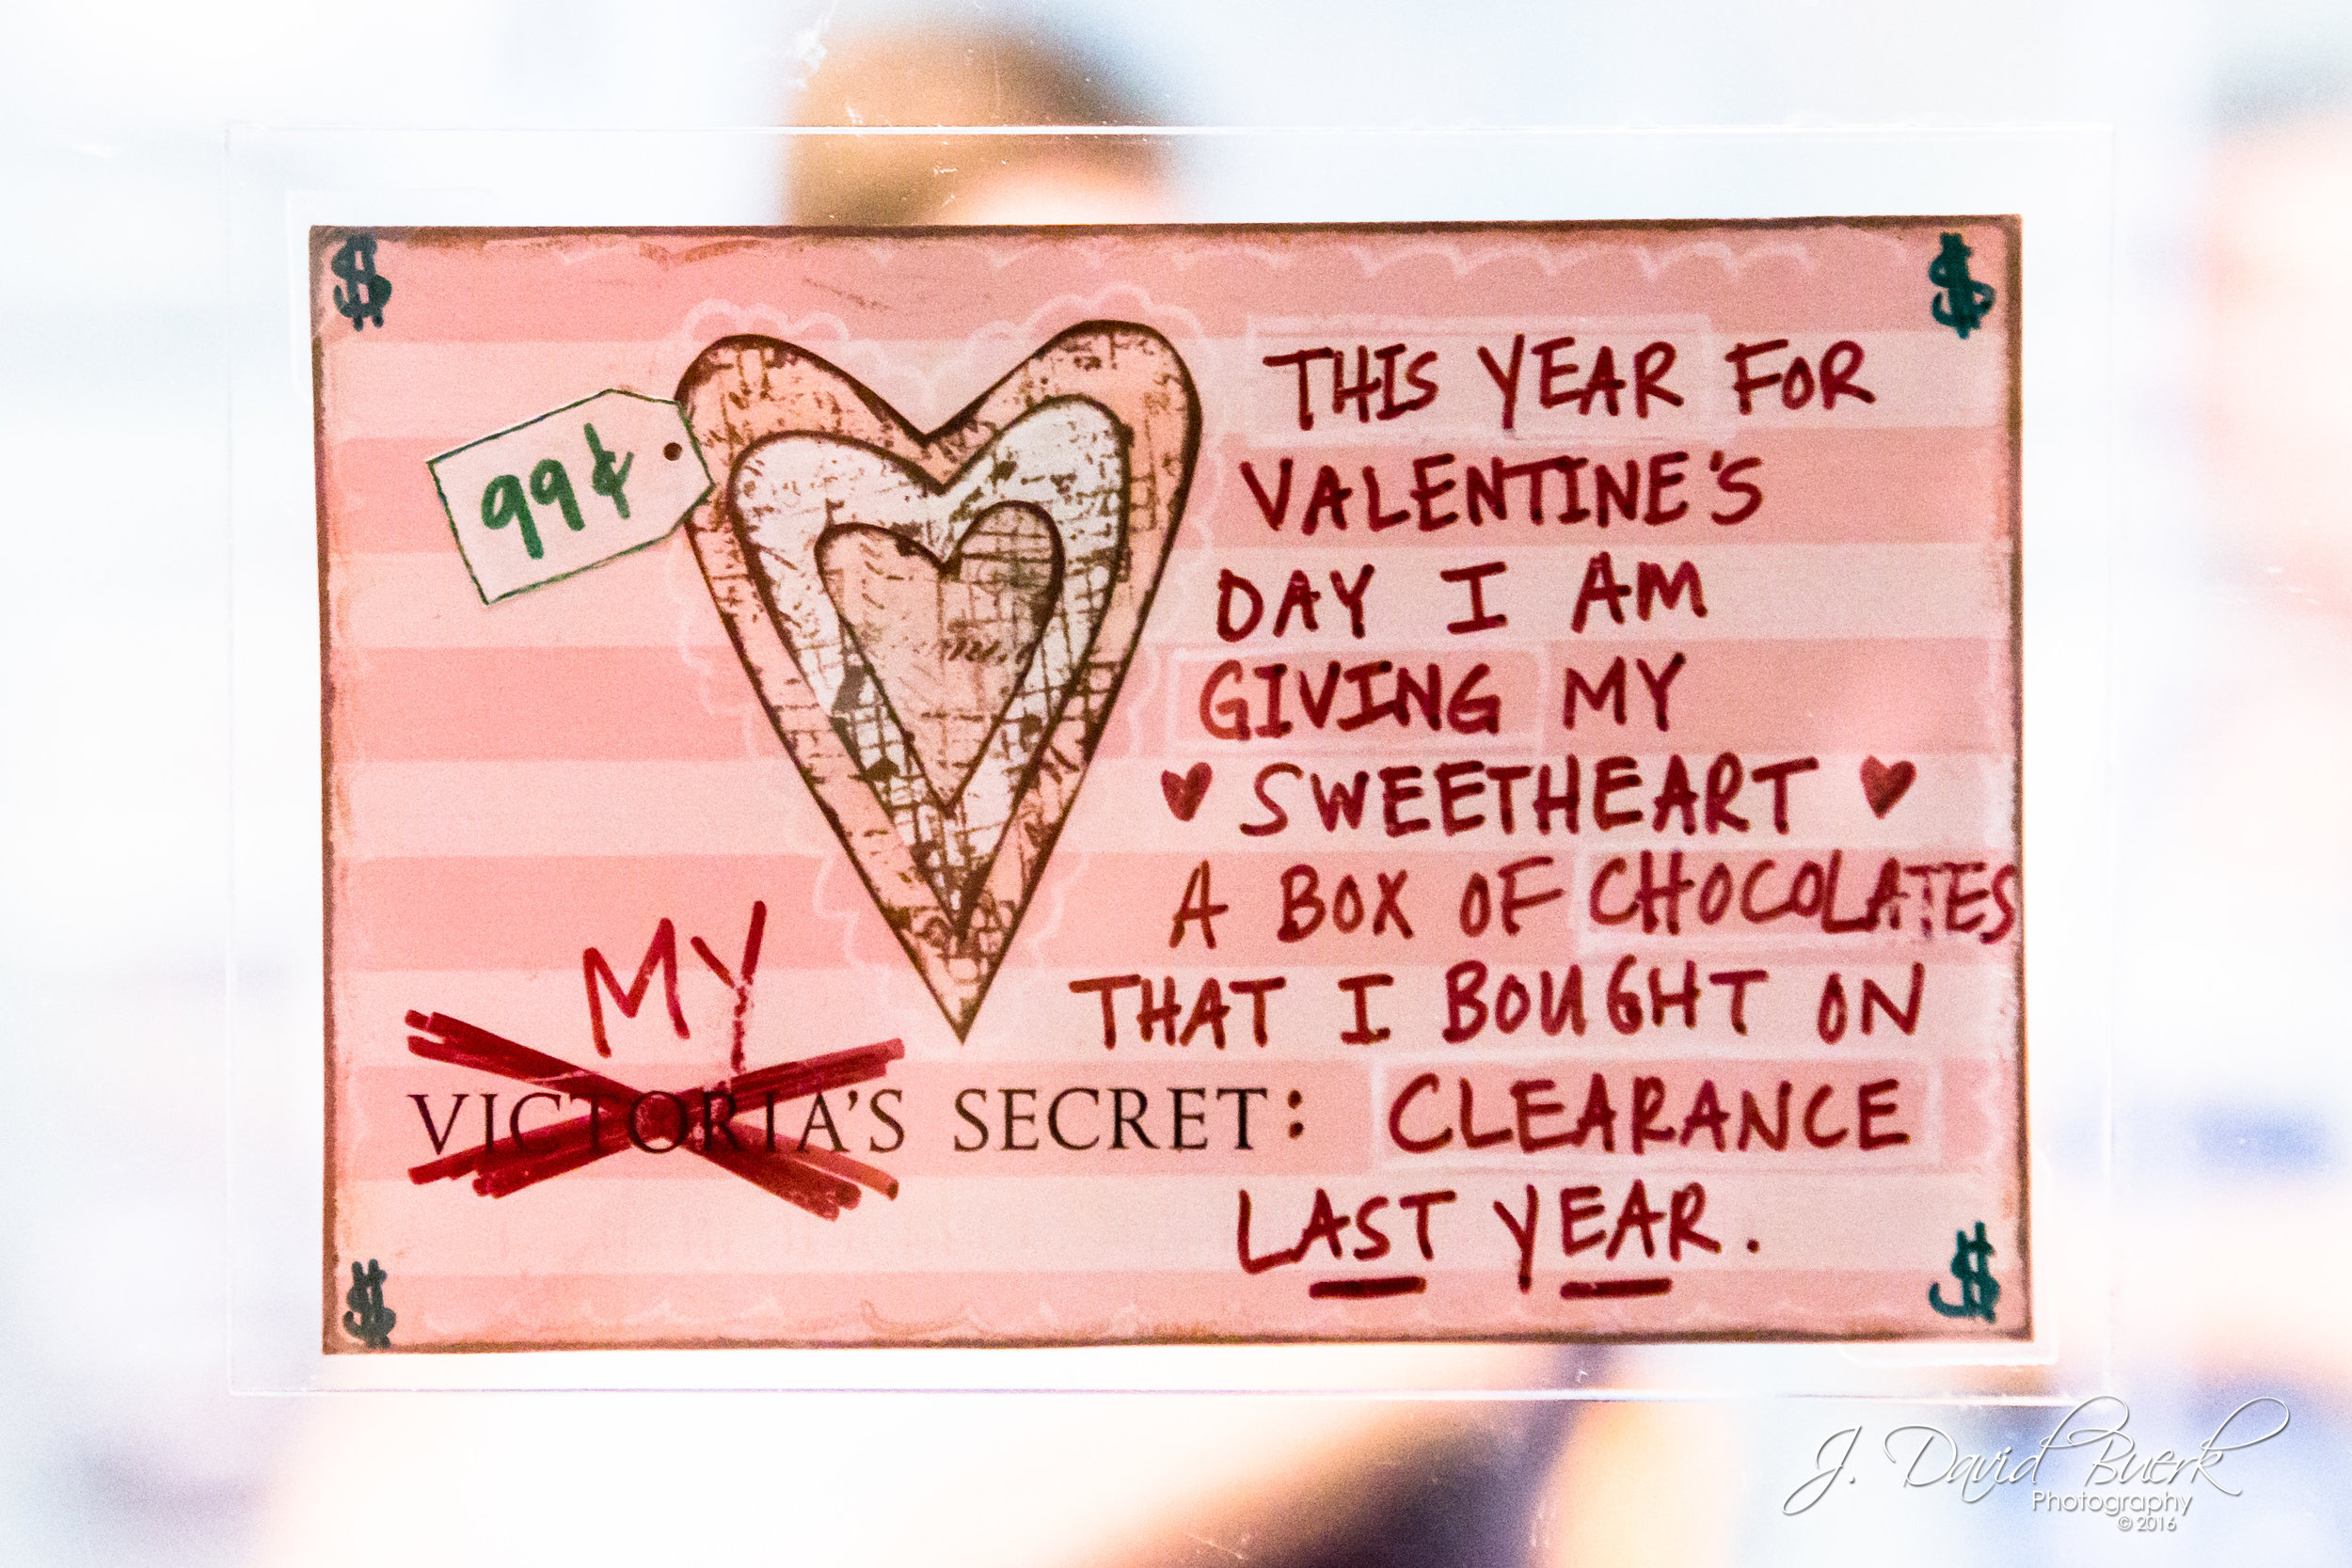 $
$
99¢
THIS YEAR FOR
VALENTINE'S
DAY I AM
GIVING MY
♥ SWEETHEART ♥
A BOX OF CHOCOLATES
THAT I BOUGHT ON
CLEARANCE
LAST YEAR.
MY
VICTORIA'S SECRET:
$
$
J. David Buerk
Photography
© 2016